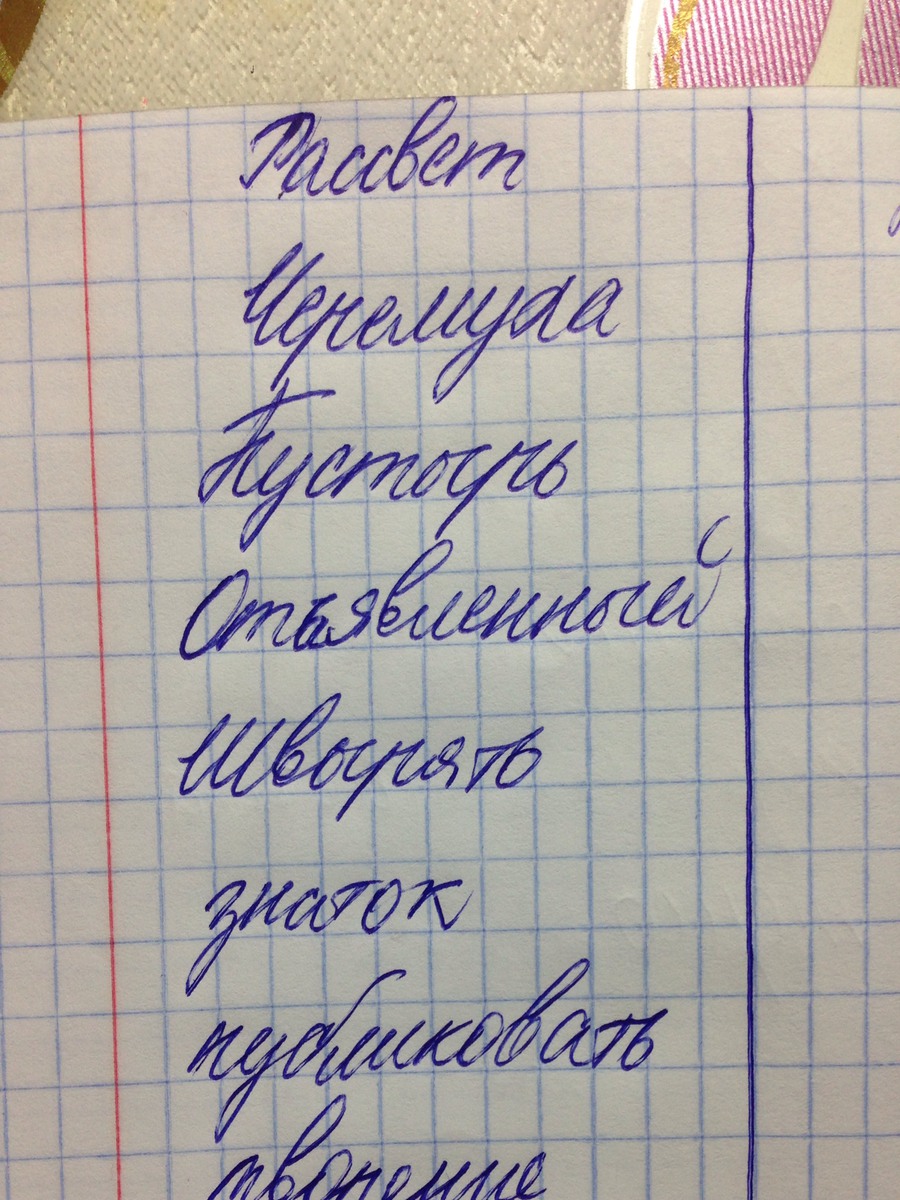 Рассвет
Черемуха
Пустырь
Отъявленный
Швырять
знаток
публиковать
творение